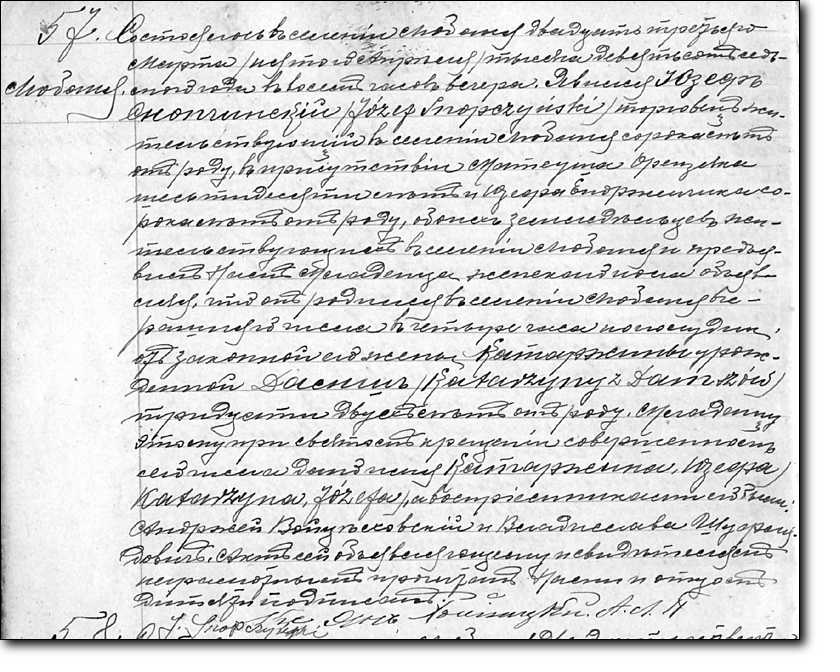 57. Состоялось въ селеніи Слободзея двадцать третьяго
Марта / пятаго Апрѣля / тысяча девятьсотъ седь-
маго года въ восемь часовъ вечера. Явился Юзефъ
Снопчинскій /Józef Snopczyński/ торговецъ жи-
тельствующій въ селеніи сорока лѣтъ
отъ роду, въ присутствіи Матеуша
шестидесяти лѣтъ и Юзефа со-
рока лѣтъ отъ роду, обоихъ земледѣльцевъ жи-
тельствующихъ въ селеніи и предъя-
вилъ Намъ Младенца женскаго пола объя-
вляя, что онъ родился въ селеніи вче-
рашняго числа въ четыре часа по полудни
отъ законной его жены Катаржины урож-
денной Дасшъ /Katarzyny z Damszów/
тридцати двухъ лѣтъ отъ роду. Младенцу
этому при святомъ крещеніи совершенномъ
сего числа дано имя Катаржина, Юзефа /
Katarzyna, Józefa/, а воспріемниками его были:
Андржей Войцѣховскій и Владислава
Актъ сей объявляющему и свидѣтелямъ
неграмотнымъ прочитанъ Нами и отцомъ
дитяти подписанъ.
J. Snopczyński
58.